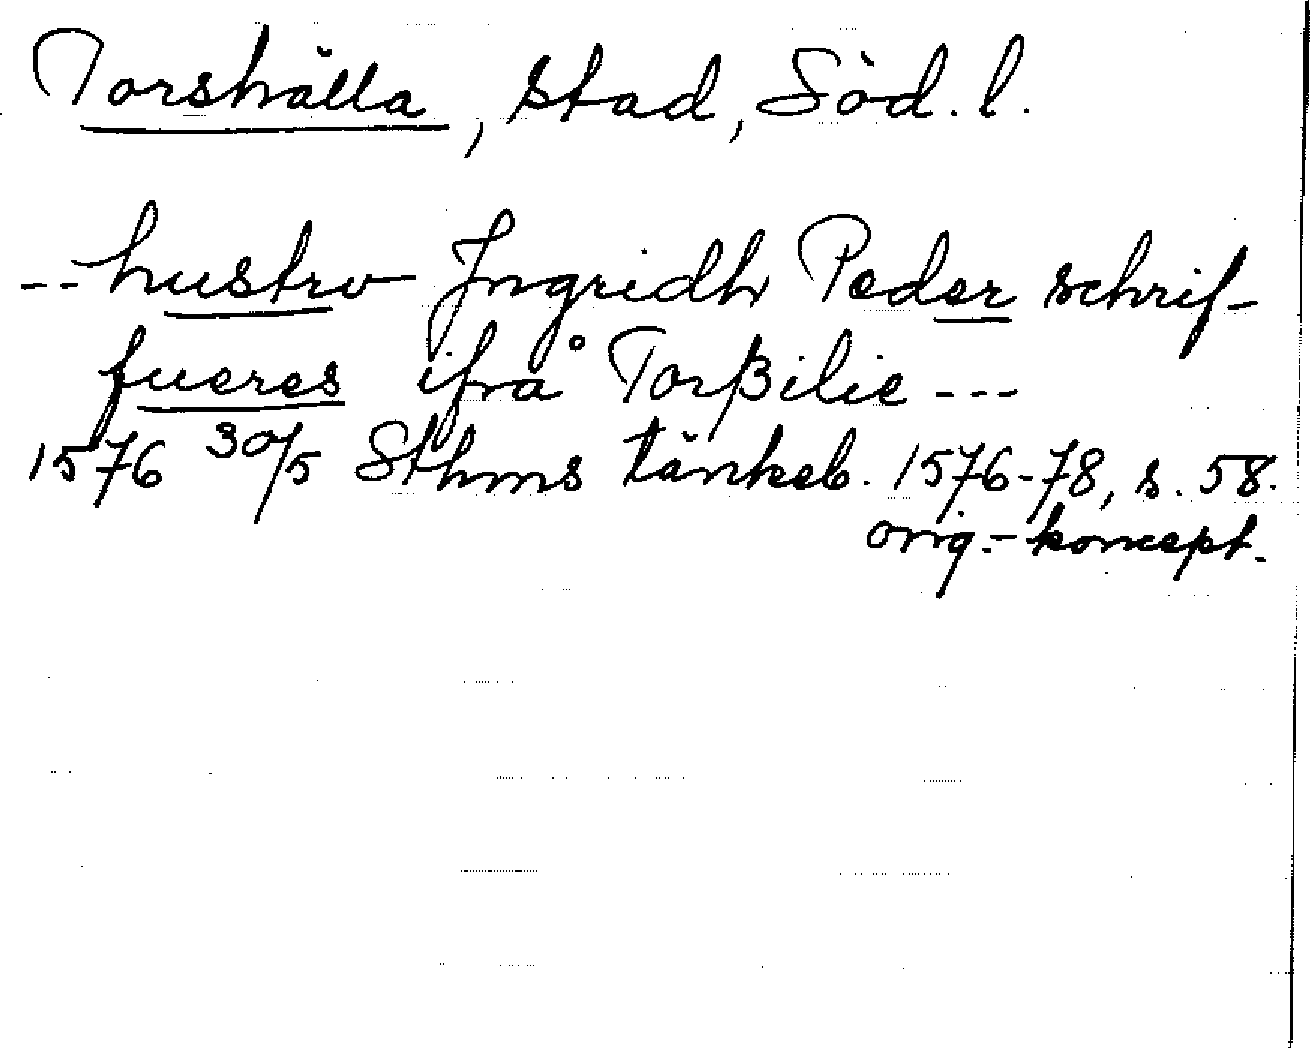 Torshälla, stad, Söd. l.
--hustrv Jngridh Peder schrif-
fueres ifrå Torßilie ---
1576 30/5 Sthms tänkeb. 1576-78, s. 58.
orig.-koncept.